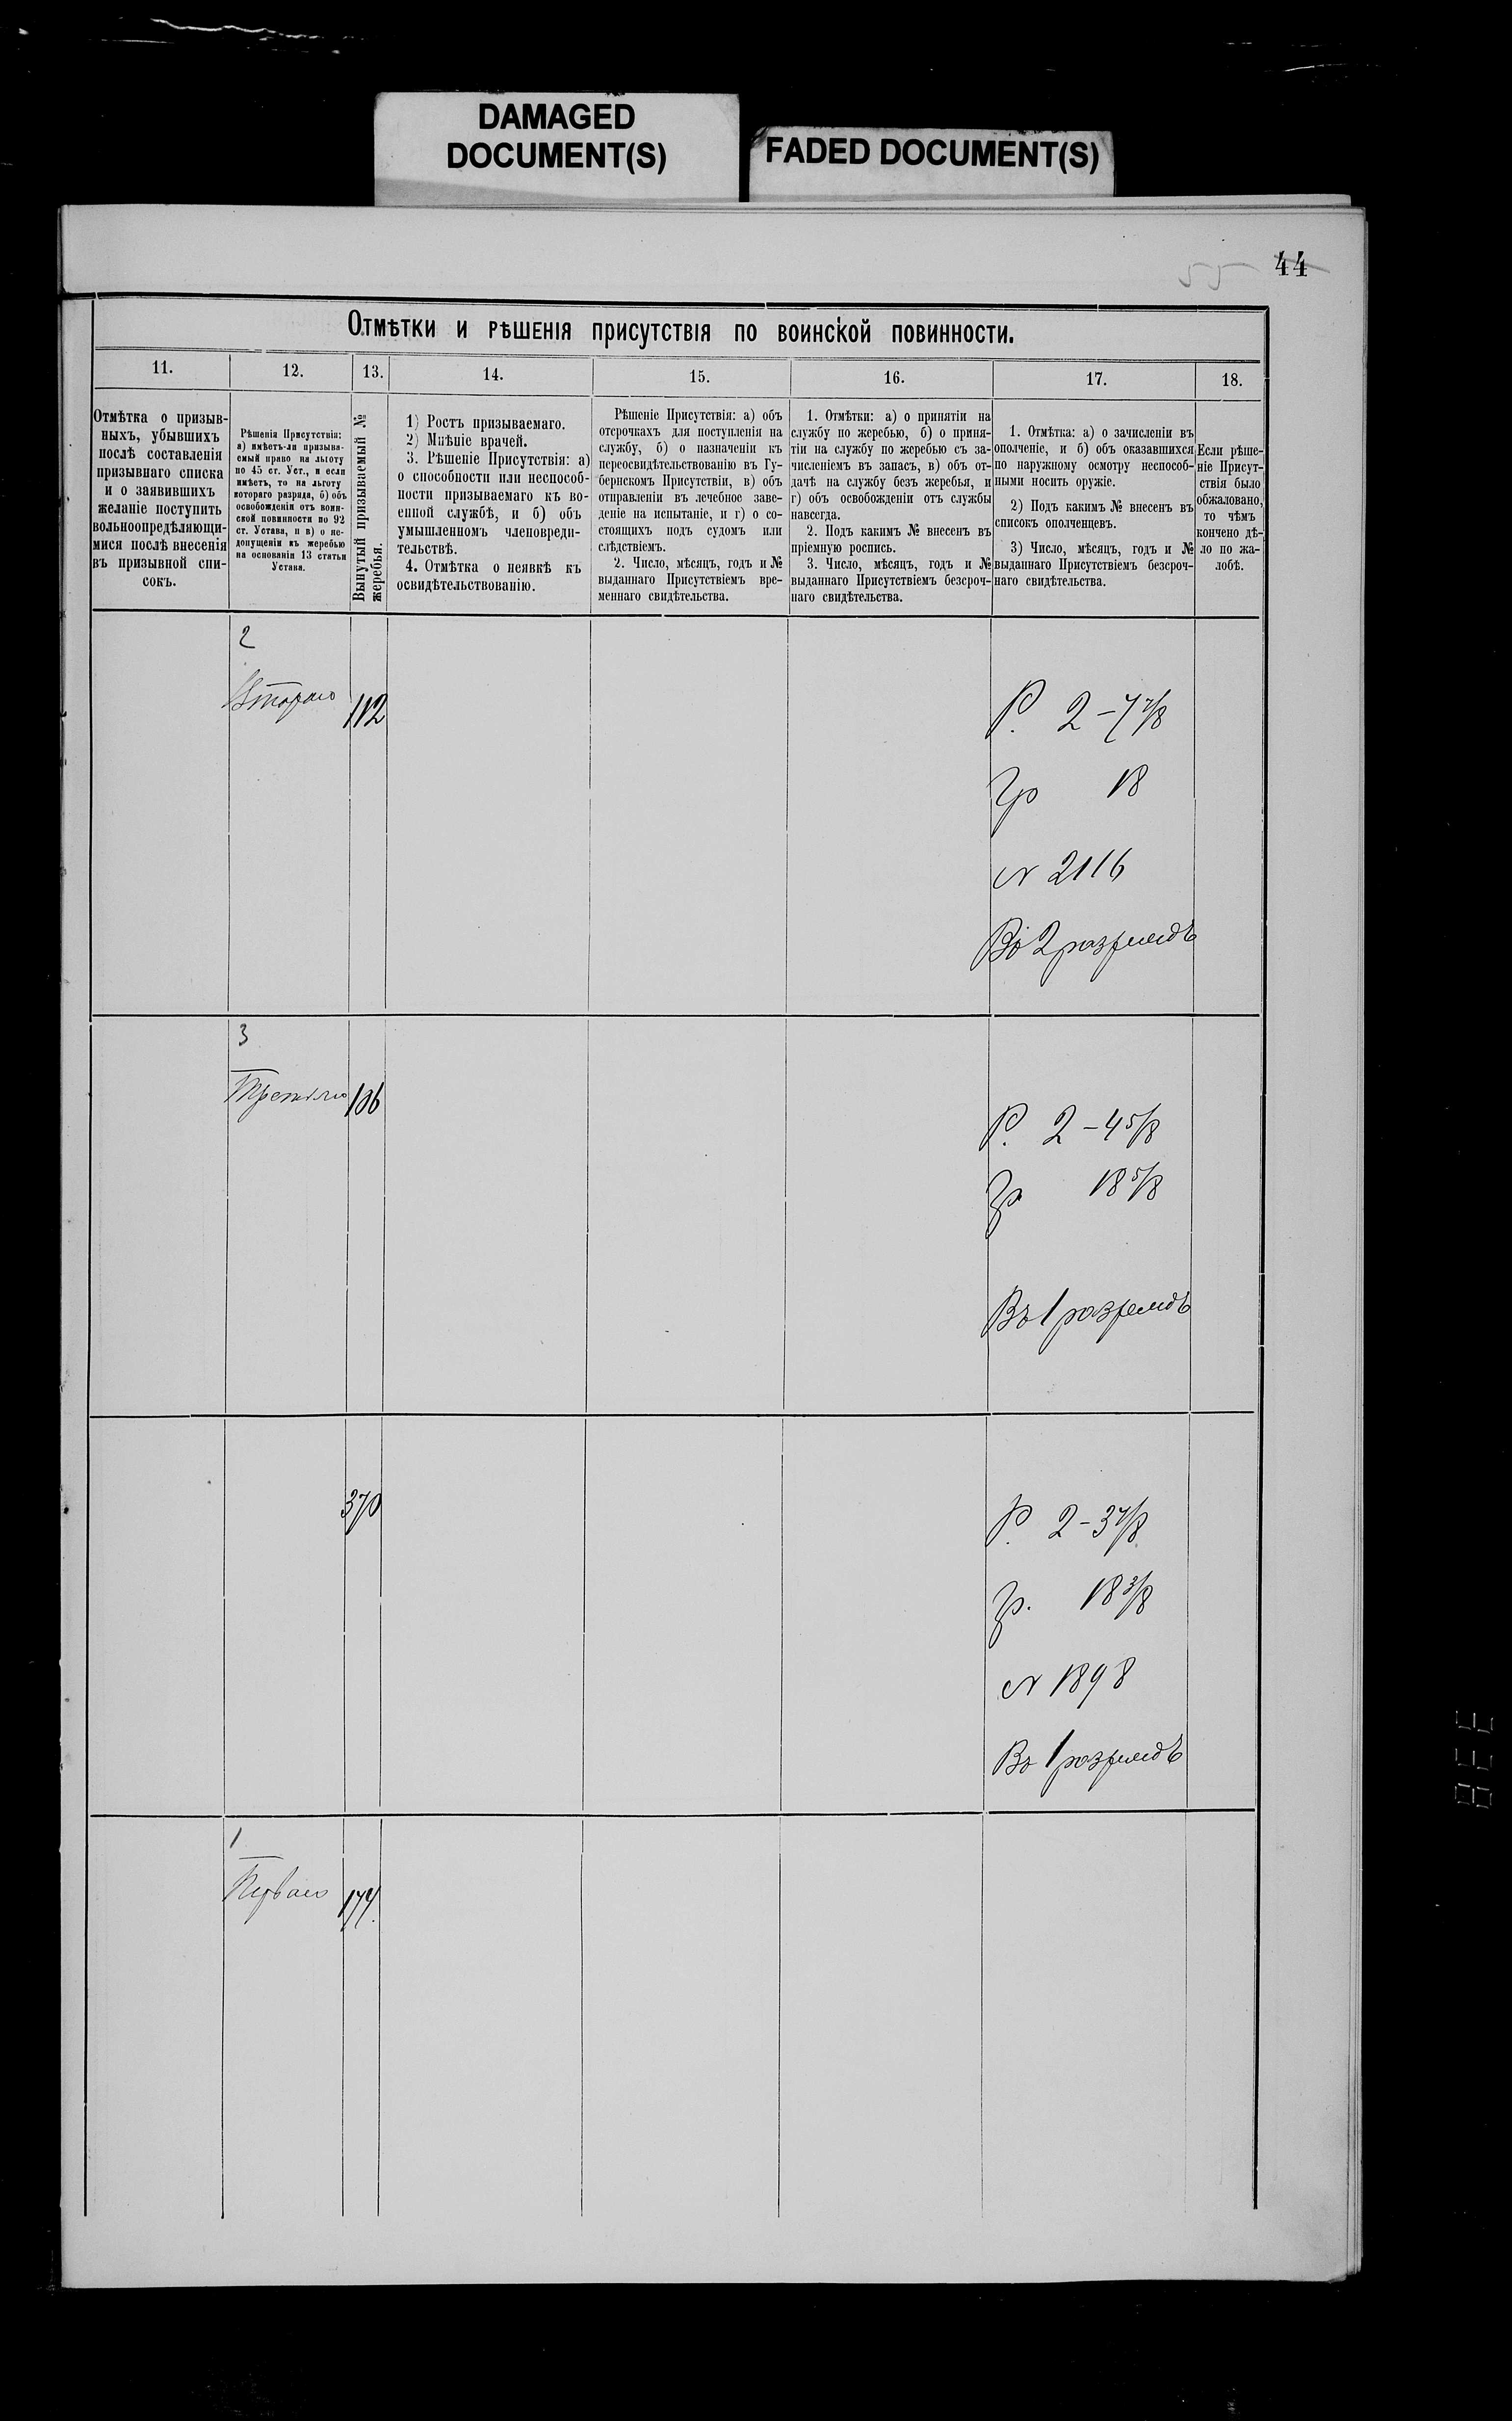 DAMAGED
DOCUMENT(S)
FADED DOCUMENT(S)
55 44
Отмѣтки и рѣшенія присутствія по воинской повинности.
11.
12.
13.
14.
15.
16.
17.
18.
Отмѣтка о призыв-
ныхъ, убывшихъ
послѣ составленія
призывнаго списка
и о заявившихъ
желаніе поступить
вольноопредѣляющи-
мися послѣ внесенія
въ призывной спи-
сокъ.
Рѣшенія Присутствія:
а) имѣетъ-ли призыва-
емый право на льготу
по 45 ст. Уст., и если
имѣетъ, то на льготу
котораго разряда, б) объ
освобожденіи отъ воин-
ской повинности по 92
ст. Устава, и в) о не-
допущеніи къ жеребью
на основаніи 13 статьи
Устава.
Вынутый призываемый №
жеребья.
1) Ростъ призываемаго.
2) Мнѣніе врачей.
3. Рѣшеніе Присутствія: а)
о способности или неспособ-
ности призываемаго къ во-
енной службѣ, и б) объ
умышленномъ членовреди-
тельствѣ.
4. Отмѣтка о неявкѣ къ
освидѣтельствованію.
Рѣшеніе Присутствія: а) объ
отсрочкахъ для поступленія на
службу, б) о назначеніи къ
переосвидѣтельствованію въ Гу-
бернскомъ Присутствіи, в) объ
отправленіи въ лечебное заве-
деніе на испытаніе, и г) о со-
стоящихъ подъ судомъ или
слѣдствіемъ.
2. Число, мѣсяцъ, годъ и №
выданнаго Присутствіемъ вре-
меннаго свидѣтельства.
1. Отмѣтки: а) о принятіи на
службу по жеребью, б) о приня-
тіи на службу по жеребью съ за-
численіемъ въ запасъ, в) объ от-
дачѣ на службу безъ жеребья, и
г) объ освобожденіи отъ службы
навсегда.
2. Подъ какимъ № внесенъ въ
пріемную роспись.
3. Число, мѣсяцъ, годъ и №
выданнаго Присутствіемъ безсроч-
наго свидѣтельства.
1. Отмѣтка: а) о зачисленіи въ
ополченіе, и б) объ оказавшихся
по наружному осмотру неспособ-
ными носить оружіе.
2) Подъ какимъ № внесенъ въ
списокъ ополченцевъ.
3) Число, мѣсяцъ, годъ и №
выданнаго Присутствіемъ безсроч-
наго свидѣтельства.
Если рѣше-
ніе Присут-
ствія было
обжаловано,
то чѣмъ
кончено дѣ-
ло по жа-
лобѣ.
2
Втораго 112
Р. 2-7 7/8
Гр 18
№ 2116
Въ 2 разрядъ
3
Третьяго 106
Р. 2-4 5/8
Гр 18 5/8
Въ 1 разрядъ
370
Р. 2-3 7/8
Гр. 18 3/8
№ 1898
Въ 1 разрядъ
1
Перваго 174.
338